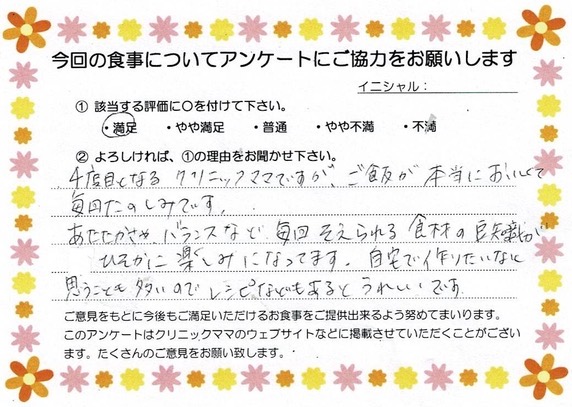 今回の食事についてアンケートにご協力をお願いします
イニシャル：
① 該当する評価に○を付けて下さい。
・満足 ・やや満足 ・普通 ・やや不満 ・不満
② よろしければ、①の理由をお聞かせ下さい。
4度目となる クリニックママですが、ご飯が 本当においしくて
毎回たのしみです。
あたたかさや、バランスなど 毎回 そえられる 食材の 豆知識が
ひそかに 楽しみ になってます。自宅で作りたいなと
思うことも 多いので レシピなどもあると うれしいです
ご意見をもとに今後もご満足いただけるお食事をご提供出来るよう努めてまいります。
このアンケートはクリニックママのウェブサイトなどに掲載させていただくことがござい
ます。たくさんのご意見をお願い致します。